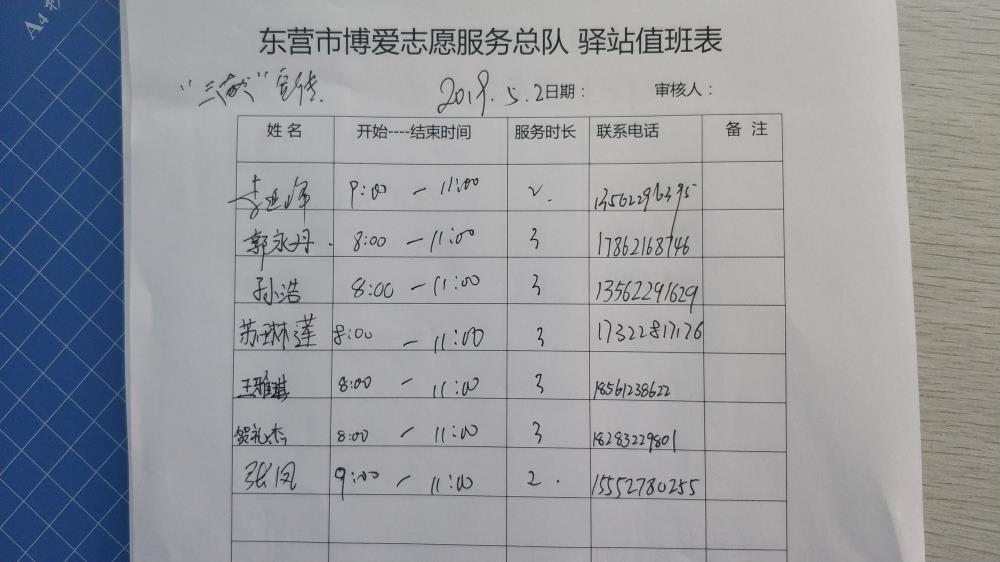 A4
东营市博爱志愿服务总队 驿站值班表
“三献”宣传. 2019.5.2日期： 审核人：
姓名 开始----结束时间 服务时长 联系电话 备 注
李 9:00 — 11:00 2. 13562296395
郭永丹. 8:00 — 11:00 3 17862168746
孙浩 8:00 — 11:00 3 13562291629
苏琳莲 8:00 — 11:00 3 17322817176
王雅琪 8:00 — 11:00 3 18561238622
贺礼杰 8:00 — 11:00 3 18283229801
张凤 9:00 — 11:00 2. 15552780255